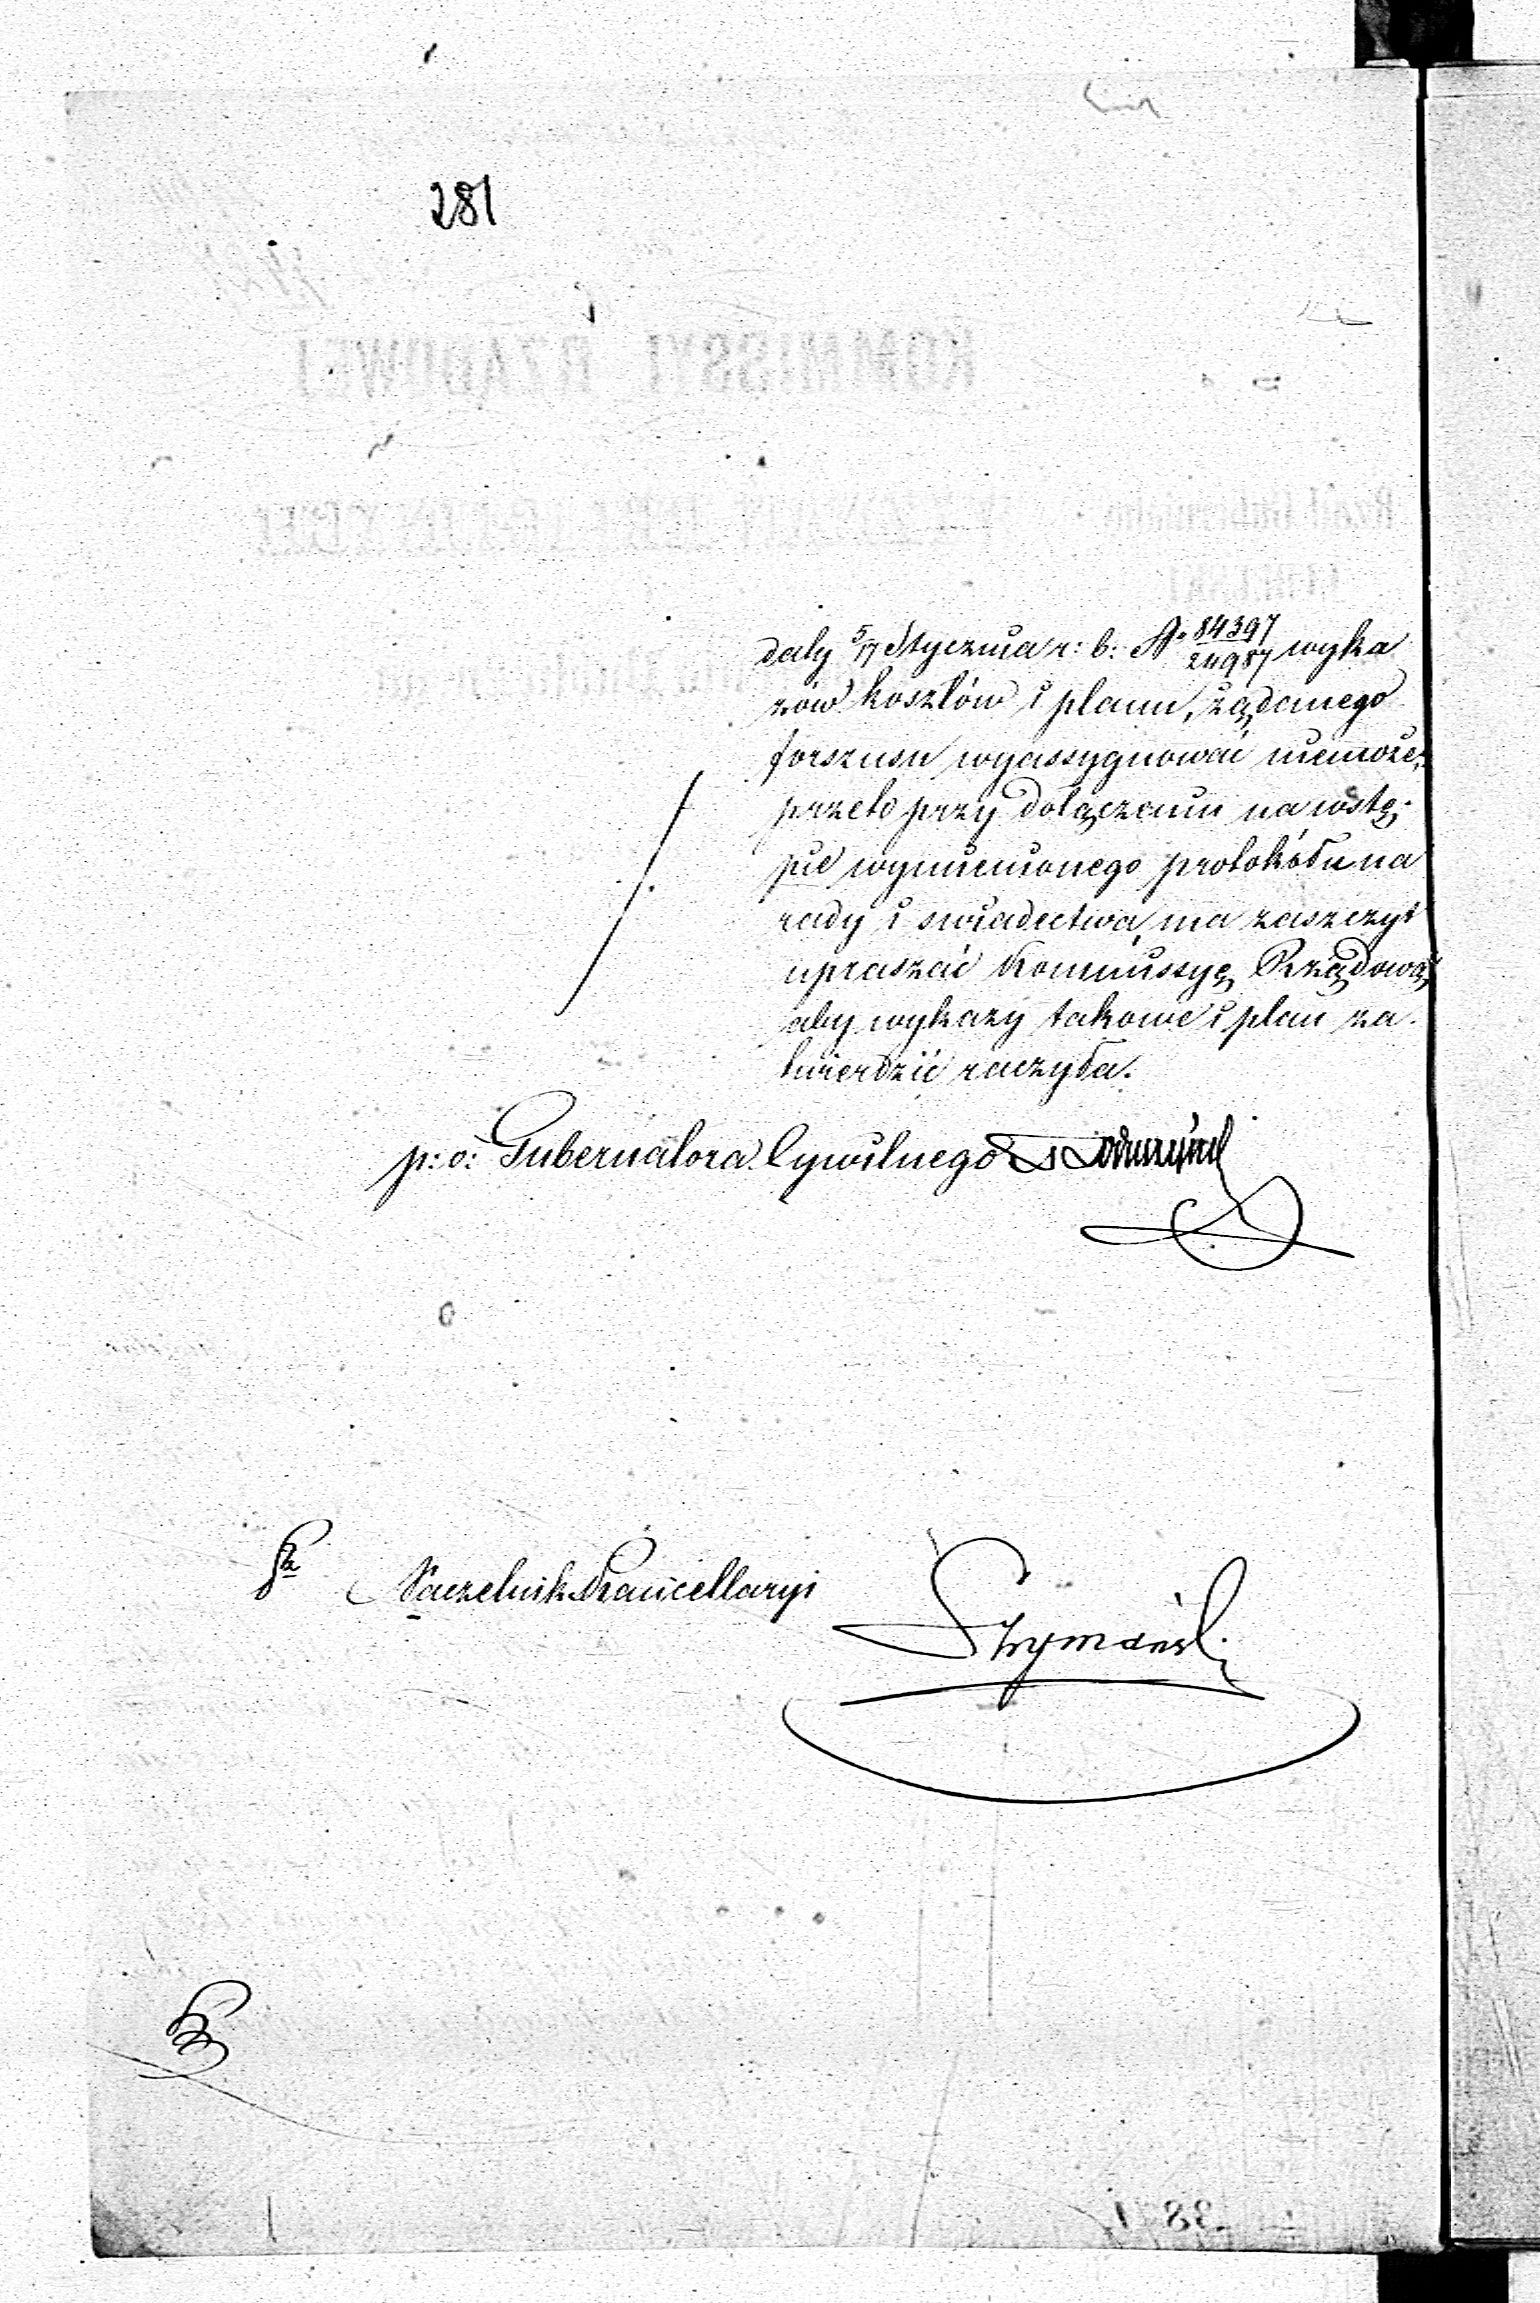 281
daty 5/17 Stycznia r: b: No 84397/24987 wyka
zów kosztów i planu, żądanego
forszusu wyassygnować niemoże,
przeto przy dołączeniu na wstę-
pie wymienionego protokółu na
rady i swiadectwa, ma zaszczyt
upraszać Kommissyę Rządową
aby wykazy takowe i plan za-
twierdzić raczyła.
p: o: Gubernatora Cywilnego
Naczelnik Kancellaryi Szymański